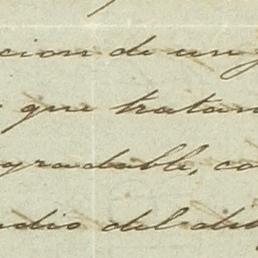 cion de un
que tratan
gradable, co
dio del di